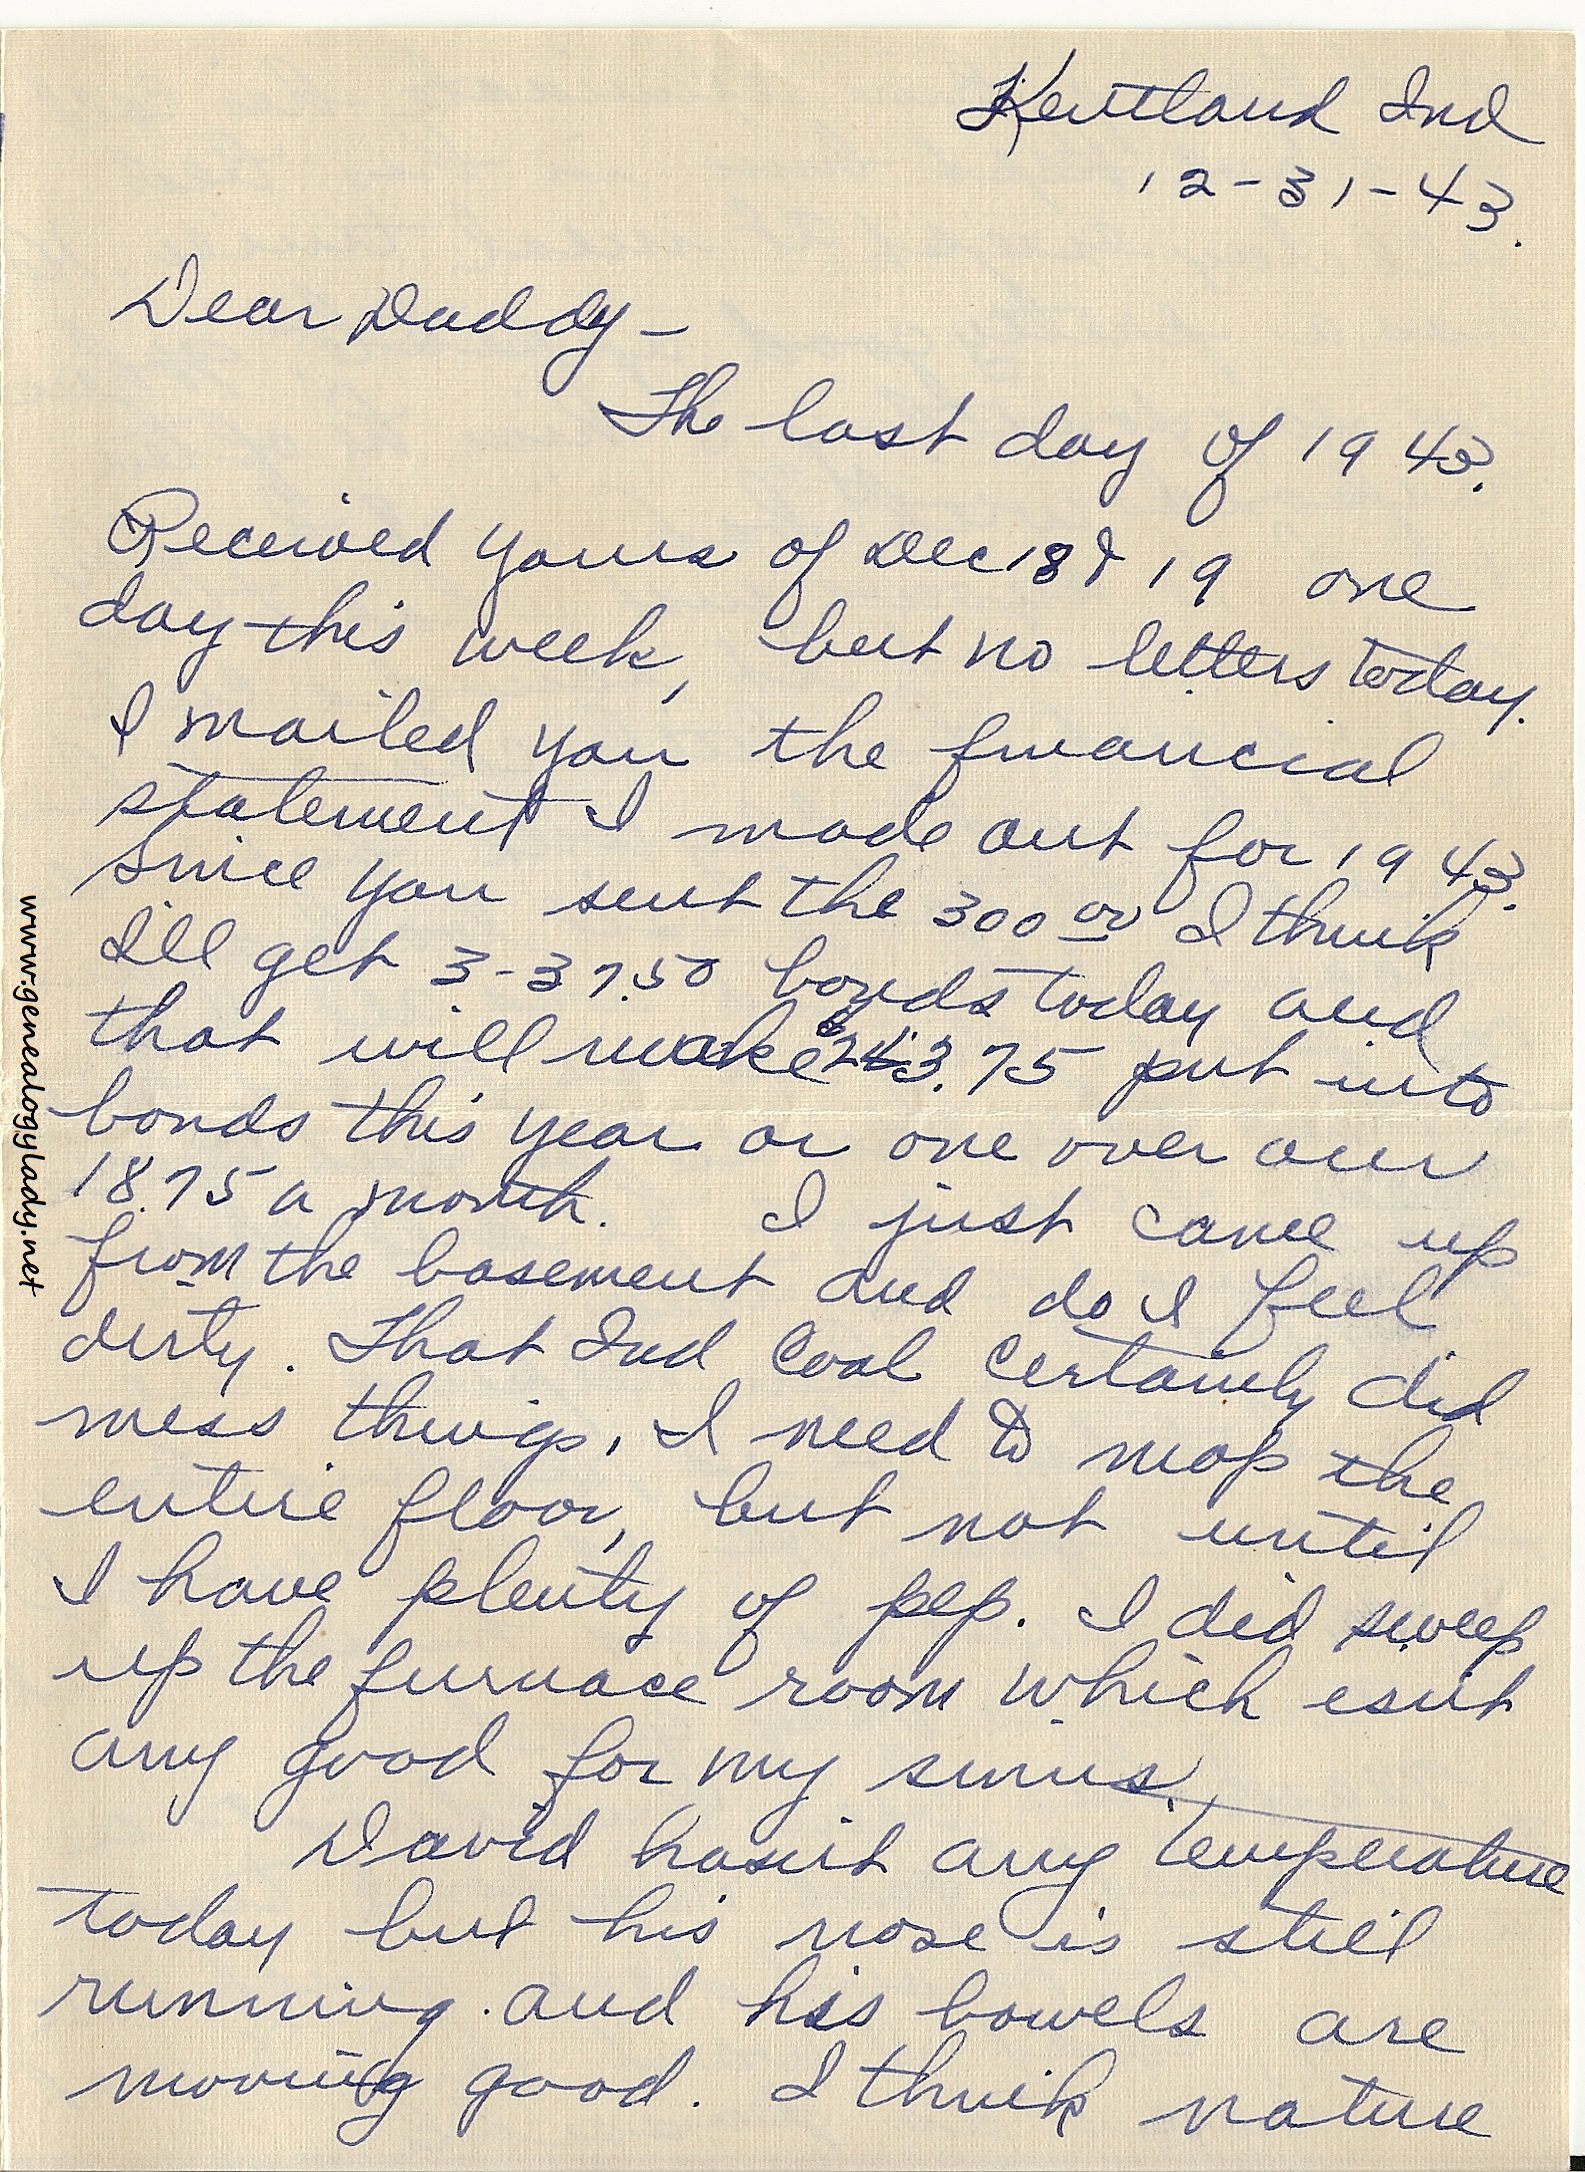 Kentland Ind
12-31-43.
Dear Daddy —
The last day of 1943.
Received yours of Dec 18 & 19 one
day this week, but no letters today.
I mailed you the financial
statement I made out for 1943.
Since you sent the 300 00 I think
I'll get 3-37.50 bonds today and
that will make $243.75 put into
bonds this year or one over our
18.75 a month. I just came up
from the basement and do I feel
dirty. That Ind Coal certainly did
mess things. I need to mop the
entire floor, but not until
I have plenty of pep. I did sweep
up the furnace room which isn't
any good for my sinus.
David hasn't any temperature
today but his nose is still
running. and his bowels are
moving good. I think nature
www.genealogylady.net